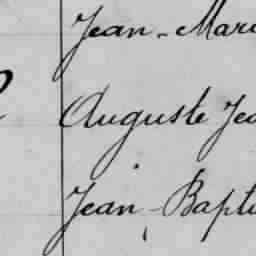 Jean-Mari
Auguste Jea
Jean-Bapti